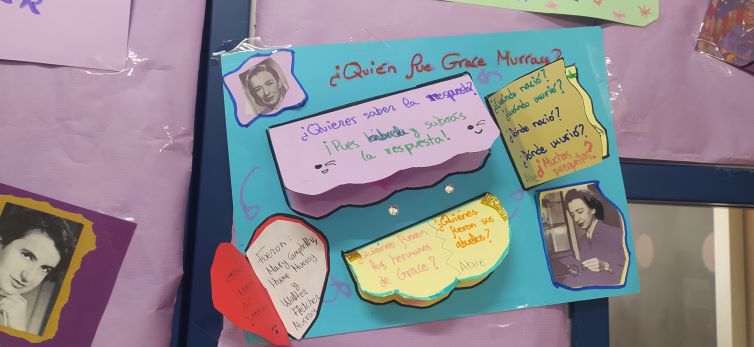 ¿Quién fue Grace Murray?
¿Quieres saber la respuesta?
¡Pues ábrela y sabrás
la respuesta!
¿Cuándo nació?
¿Cuándo murió?
¿Dónde nació?
¿Dónde murió?
¿Muchas
preguntas?
Fueron:
Mary Campbell
Horne Murray
y
Walter
Fletcher
Murray
¿Quiénes fueron
los hermanos
de Grace?
¿Quienes
fueron sus
abuelos?
Abre